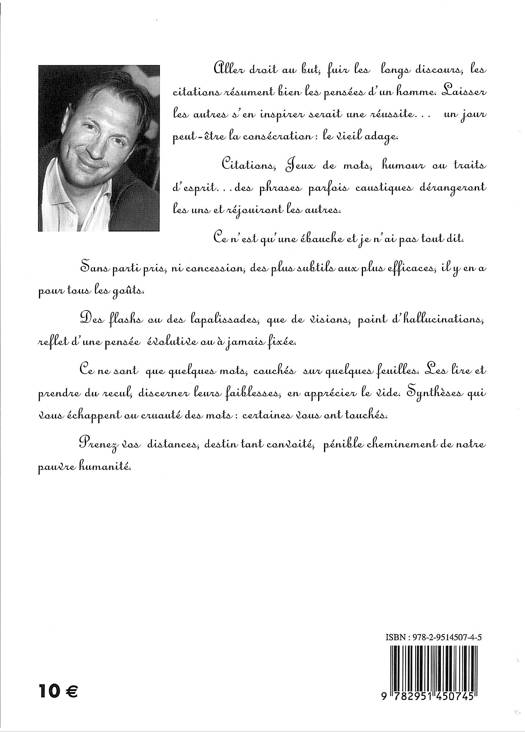 Aller droit au but, fuir les longs discours, les
citations résument bien les pensées d'un homme. Laisser
les autres s'en inspirer serait une réussite... un jour
peut-être la consécration : le vieil adage.
Citations, Jeux de mots, humour ou traits
d'esprit...des phrases parfois caustiques dérangeront
les uns et réjouiront les autres.
Ce n'est qu'une ébauche et je n'ai pas tout dit.
Sans parti pris, ni concession, des plus subtils aux plus efficaces, il y en a
pour tous les goûts.
Des flashs ou des lapalissades, que de visions, point d'hallucinations,
reflet d'une pensée évolutive ou à jamais fixée.
Ce ne sont que quelques mots, couchés sur quelques feuilles. Les lire et
prendre du recul, discerner leurs faiblesses, en apprécier le vide. Synthèses qui
vous échappent ou cruauté des mots : certaines vous ont touchés.
Prenez vos distances, destin tant convoité, pénible cheminement de notre
pauvre humanité.
ISBN : 978-2-9514507-4-5
10 €
9 782951 450745